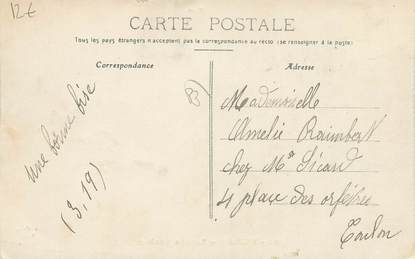 12€
CARTE POSTALE
Tous les pays étrangers n'acceptent pas la correspondance au recto (se renseigner à la poste)
Correspondance
Adresse
B)
une bonne bise
(3, 19)
Mademoiselle
Amelie Raimbert
chez Mr Sicard
4 place des orfèvres
Toulon